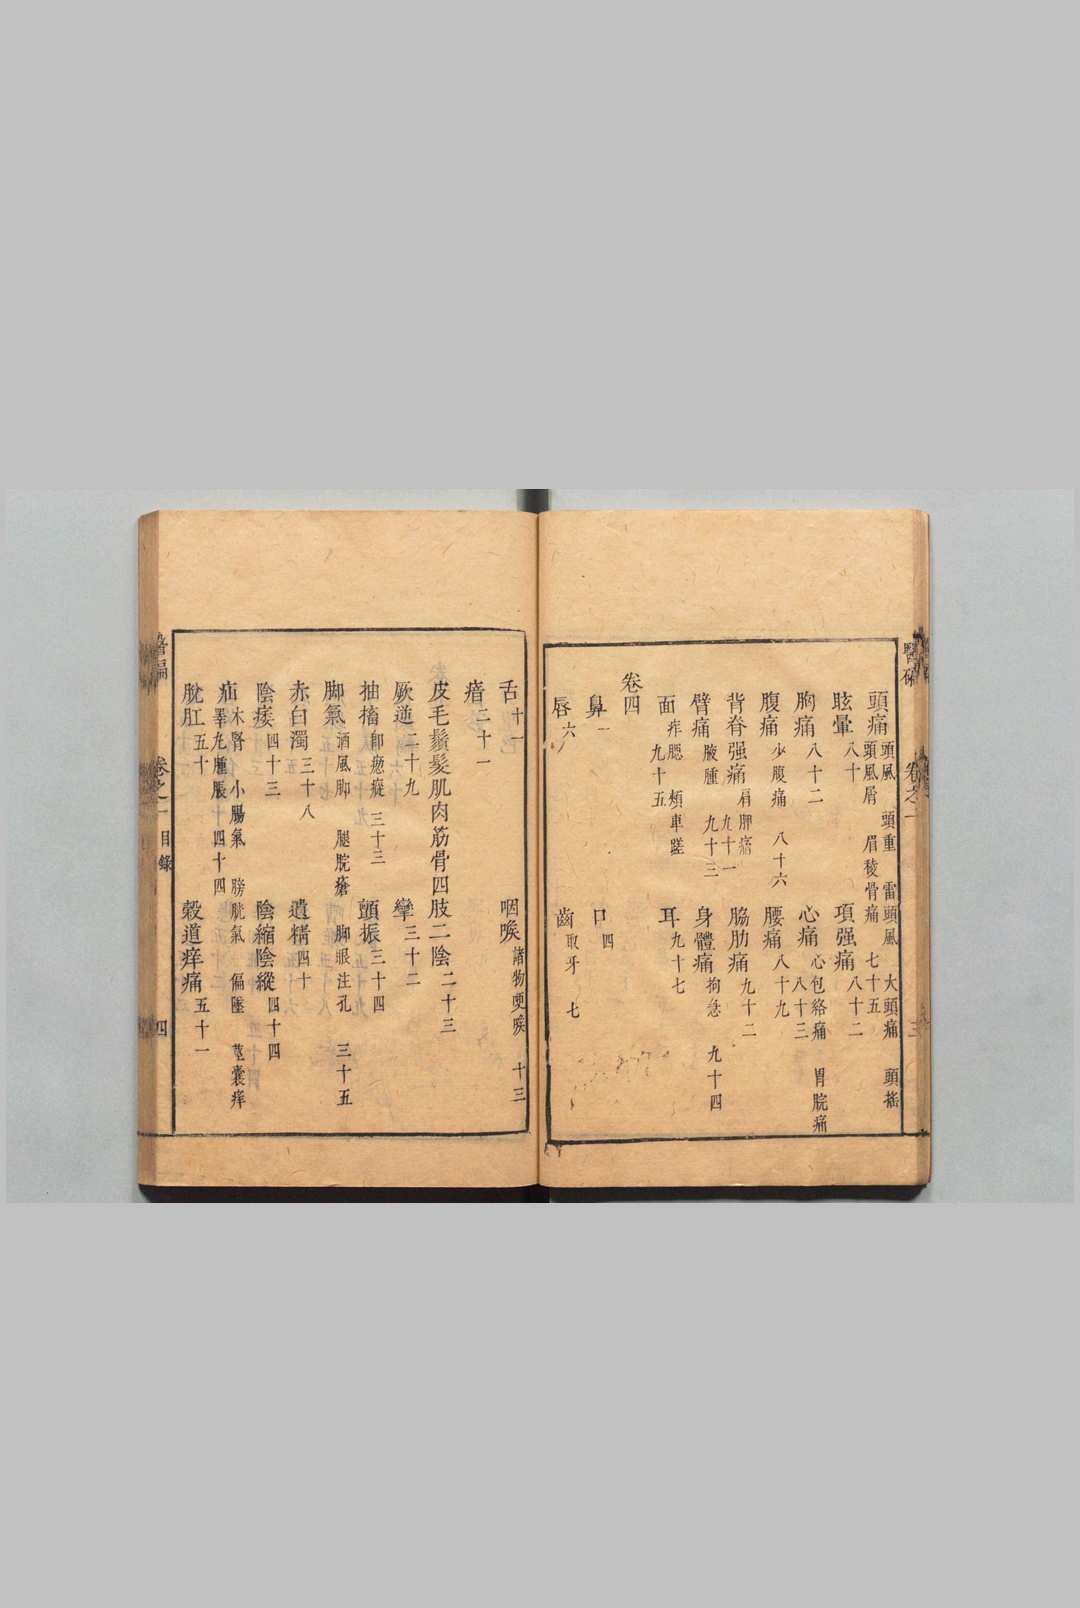 頭痛 頭風 頭重 雷頭風 大頭痛 頭搖 頭風屑 眉稜骨痛 七十五
眩暈 八十 項强痛 八十二
胸痛 八十二 心痛 心包絡痛 胃脘痛 八十三
腹痛 少腹痛 八十六 腰痛 八十九
背脊强痛 肩胛痛 九十一 脇肋痛 九十二
臂痛 腋腫 九十三 身體痛 拘急 九十四
面 痄腮 頰車蹉 九十五 耳 九十七
卷四
鼻 一 口 四
唇 六 齒 取牙 七
舌 十一 咽喉 諸物哽喉 十三
瘖 二十一
皮毛鬚髮肌肉筋骨四肢二陰 二十三
厥逆 二十九 攣 三十二
抽搐 卽瘛瘲 三十三 顫振 三十四
脚氣 酒風脚 腿脘瘡 脚眼注孔 三十五
赤白濁 三十八 遺精 四十
陰痿 四十三 陰縮陰縱 四十四
疝 木腎 小腸氣 膀胱氣 偏墜 莖囊痒 睪丸腫脹 四十四
脫肛 五十 穀道痒痛 五十一
醫碥 卷之一 目錄 四